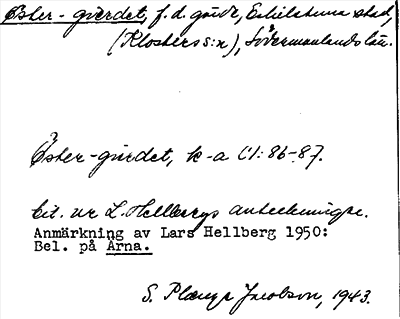 Öster-gärdet, f.d. gård, Eskilstuna stad,
(Klosters s:n), Södermanlands län.
Öster-gärdet, k-a C1:86-87.
Cit. ur L. Hellbergs anteckningar.
Anmärkning av Lars Hellberg 1950:
Bel. på Ärna.
S. Jacobson, 1943.